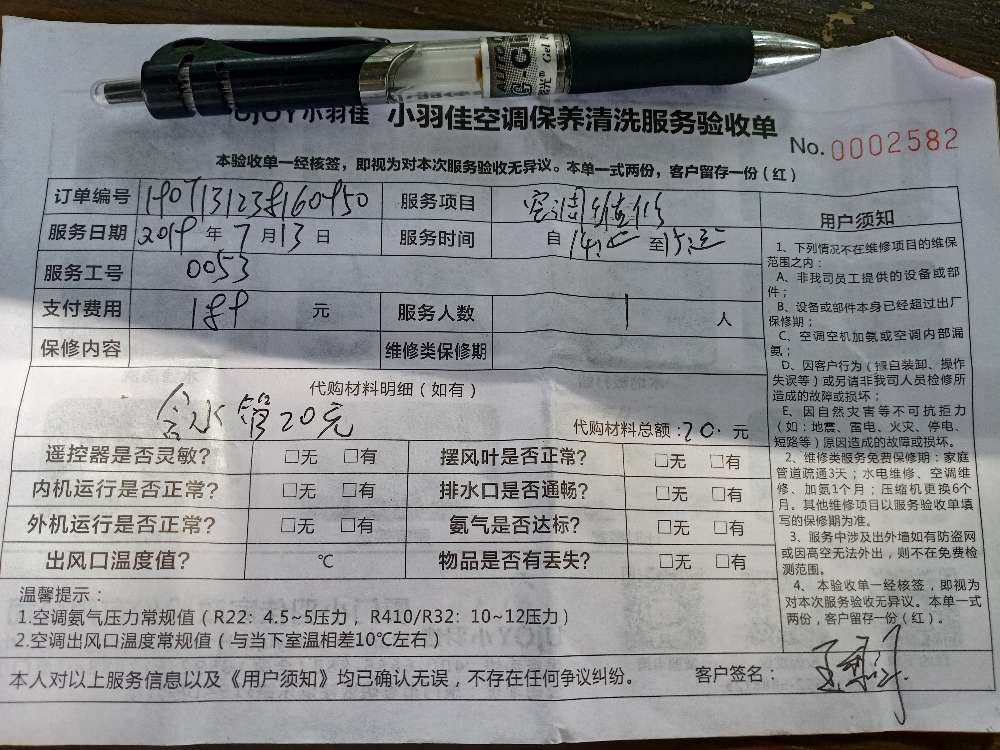 UJOY小羽佳 小羽佳空调保养清洗服务验收单
No. 0002582
本验收单一经核签，即视为对本次服务验收无异议。本单一式两份，客户留存一份（红）
订单编号 服务项目 空调维修
服务日期 2019 年 7 月 13 日 服务时间 自 至
服务工号 0053
支付费用 189 元 服务人数 1 人
保修内容 维修类保修期
代购材料明细（如有）
含水管20元
代购材料总额：20. 元
遥控器是否灵敏？ □无 □有 摆风叶是否正常？ □无 □有
内机运行是否正常？ □无 □有 排水口是否通畅？ □无 □有
外机运行是否正常？ □无 □有 氨气是否达标？ □无 □有
出风口温度值？ ℃ 物品是否有丢失？ □无 □有
温馨提示：
1.空调氨气压力常规值（R22：4.5~5压力，R410/R32：10~12压力）
2.空调出风口温度常规值（与当下室温相差10℃左右）
本人对以上服务信息以及《用户须知》均已确认无误，不存在任何争议纠纷。 客户签名：
用户须知
1、下列情况不在维修项目的维保
范围之内：
A、非我司员工提供的设备或部
件；
B、设备或部件本身已经超过出厂
保修期；
C、空调空机加氨或空调内部漏
氨；
D、因客户行为（擅自装卸、操作
失误等）或另请非我司人员检修所
造成的故障或损坏；
E、因自然灾害等不可抗拒力
（如：地震、雷电、火灾、停电、
短路等）原因造成的故障或损坏。
2、维修类服务免费保修期：家庭
管道疏通3天；水电维修、空调维
修、加氨1个月；压缩机更换6个
月。其他维修项目以服务验收单填
写的保修期为准。
3、服务中涉及出外墙如有防盗网
或因高空无法外出，则不在免费检
测范围。
4、本验收单一经核签，即视为
对本次服务验收无异议。本单一式
两份，客户留存一份（红）。